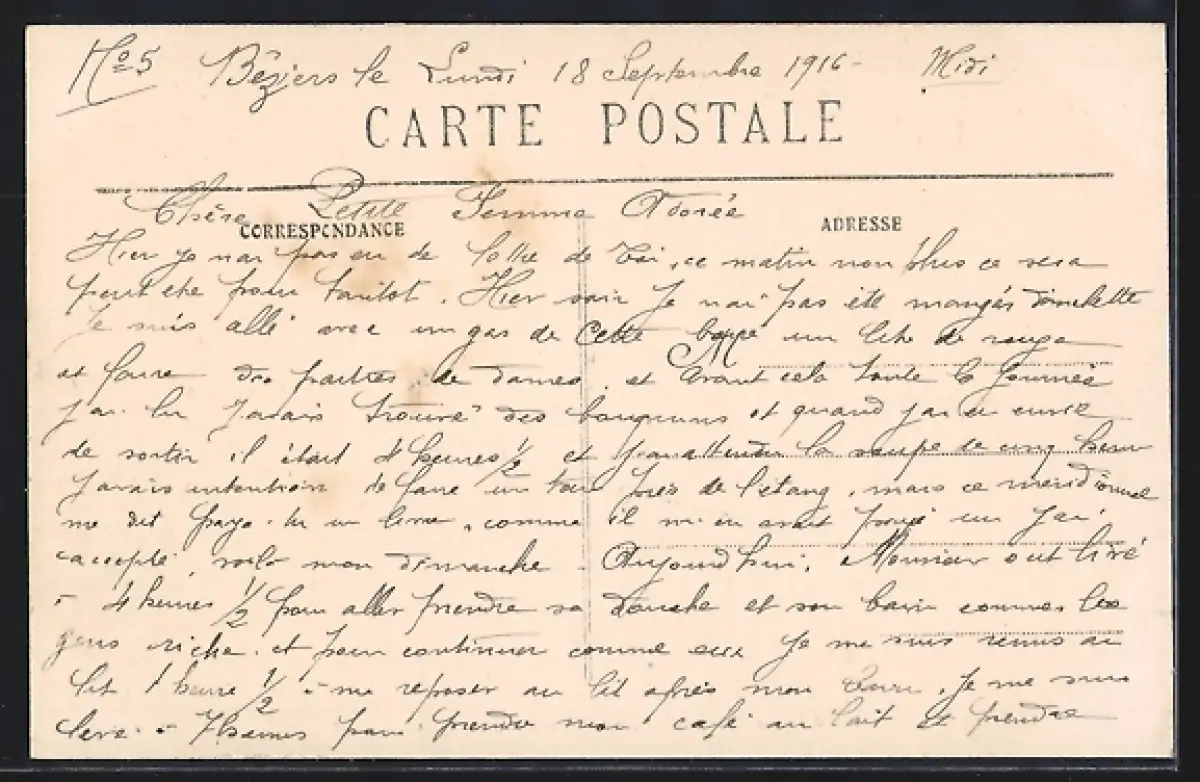 No 5 Béziers le Lundi 18 Septembre 1916 - Midi
CARTE POSTALE
Chère Petite Femme Adorée
CORRESPONDANCE
ADRESSE
Hier je nai pas eu de lettre de toi, ce matin non plus ce sera
peut etre pour tantot. Hier soir je nai pas été mangés domelette
je suis allé avec un gas de Cette boire un litre de rouge
et faire des parties de dames, et avant cela toute la journée
jai lu javais trouvé des bouquins et quand jai eu envie
de sortir il était 4 heures 1/2 et en attendan la soupe de cinq heure
javais intention de faire un tour près de l'étang, mais ce meridionnal
me dit paye tu un litre, comme il m'en avait payé un jai
accepté, voila mon dimanche. Aujourdhui, Monsieur ont tiré
à 4 heures 1/2 pour aller prendre sa douche et son bain commes les
gens riche. et pour continuer comme eux je me suis remis au
lit 1 heure 1/2 à me reposer au lit après mon bain. Je me suis
levé à 7 heures pour prendre mon café au lait et prendre